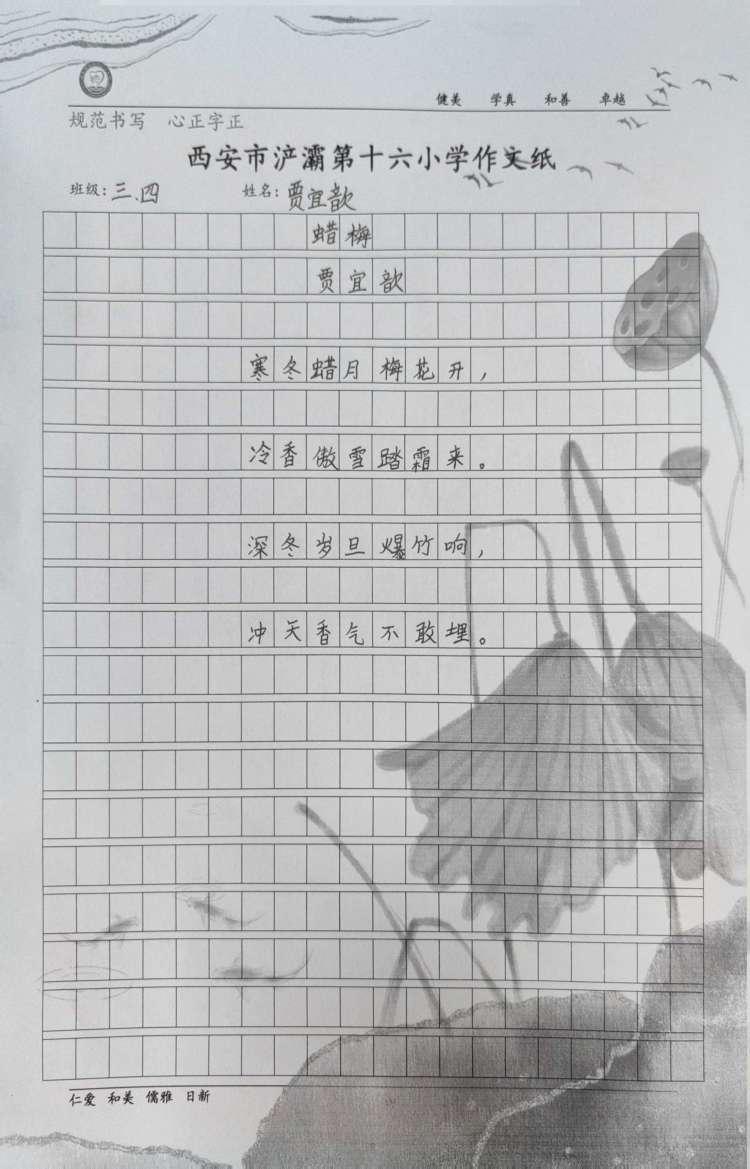 健美 学真 和善 卓越
规范书写 心正字正
西安市浐灞第十六小学作文纸
班级:三.四 姓名:贾宜歆
蜡梅
贾宜歆
寒冬蜡月梅花开,
冷香傲雪踏霜来。
深冬岁旦爆竹响,
冲天香气不敢埋。
仁爱 和美 儒雅 日新